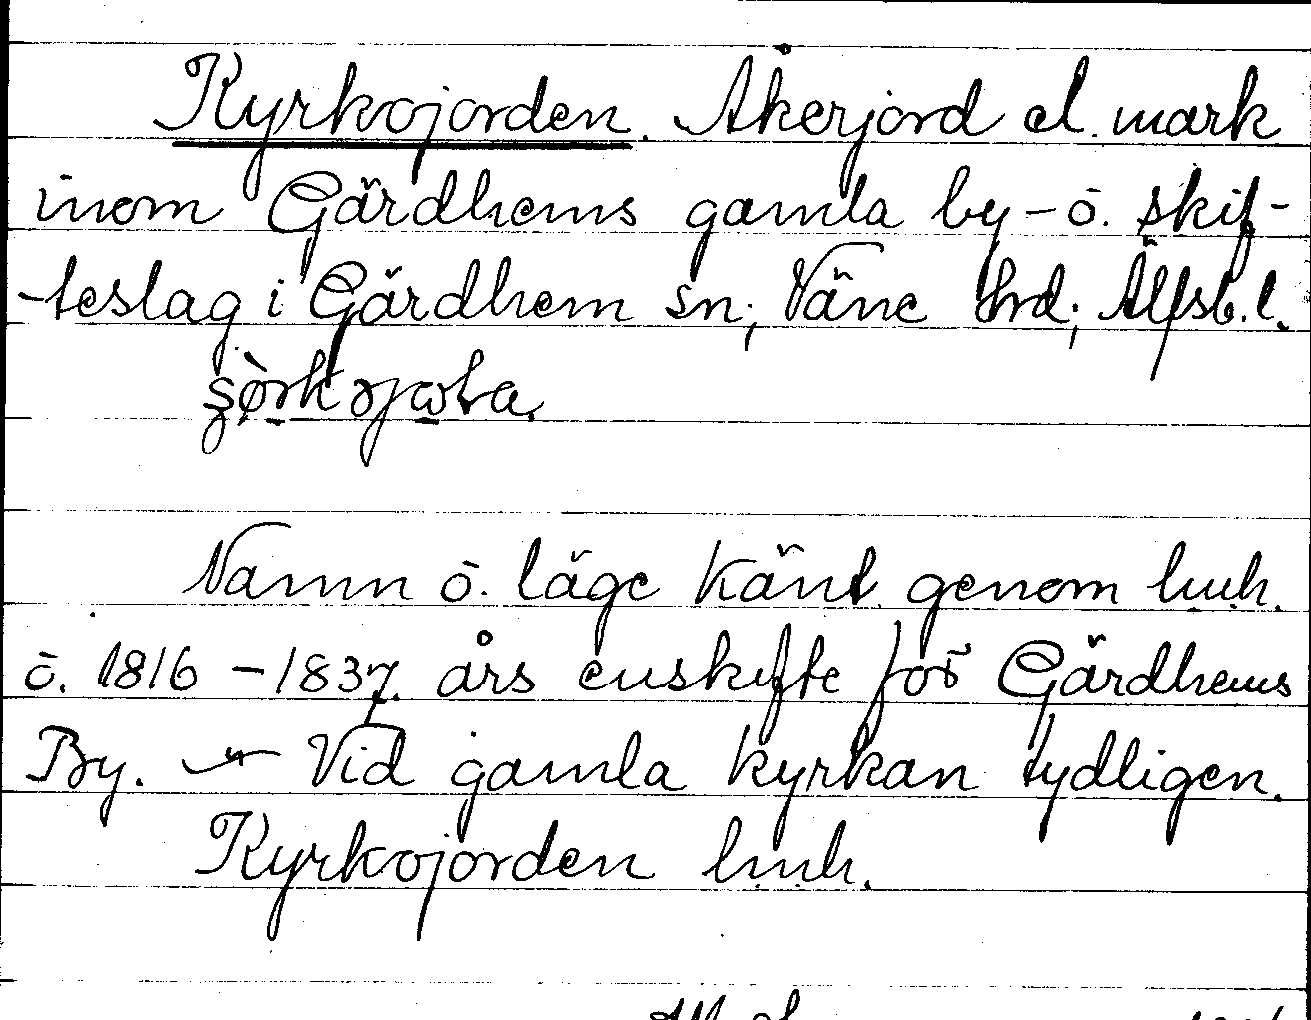 Kyrkojorden. Åkerjord el. mark
inom Gärdhems gamla by- o. skif-
-teslag i Gärdhem sn; Väne hrd; Älfsb. l.
Namn o. läge känt genom lmh.
o. 1816 - 1837. års enskifte för Gärdhems
By. — Vid gamla kyrkan tydligen.
Kyrkojorden lmh.